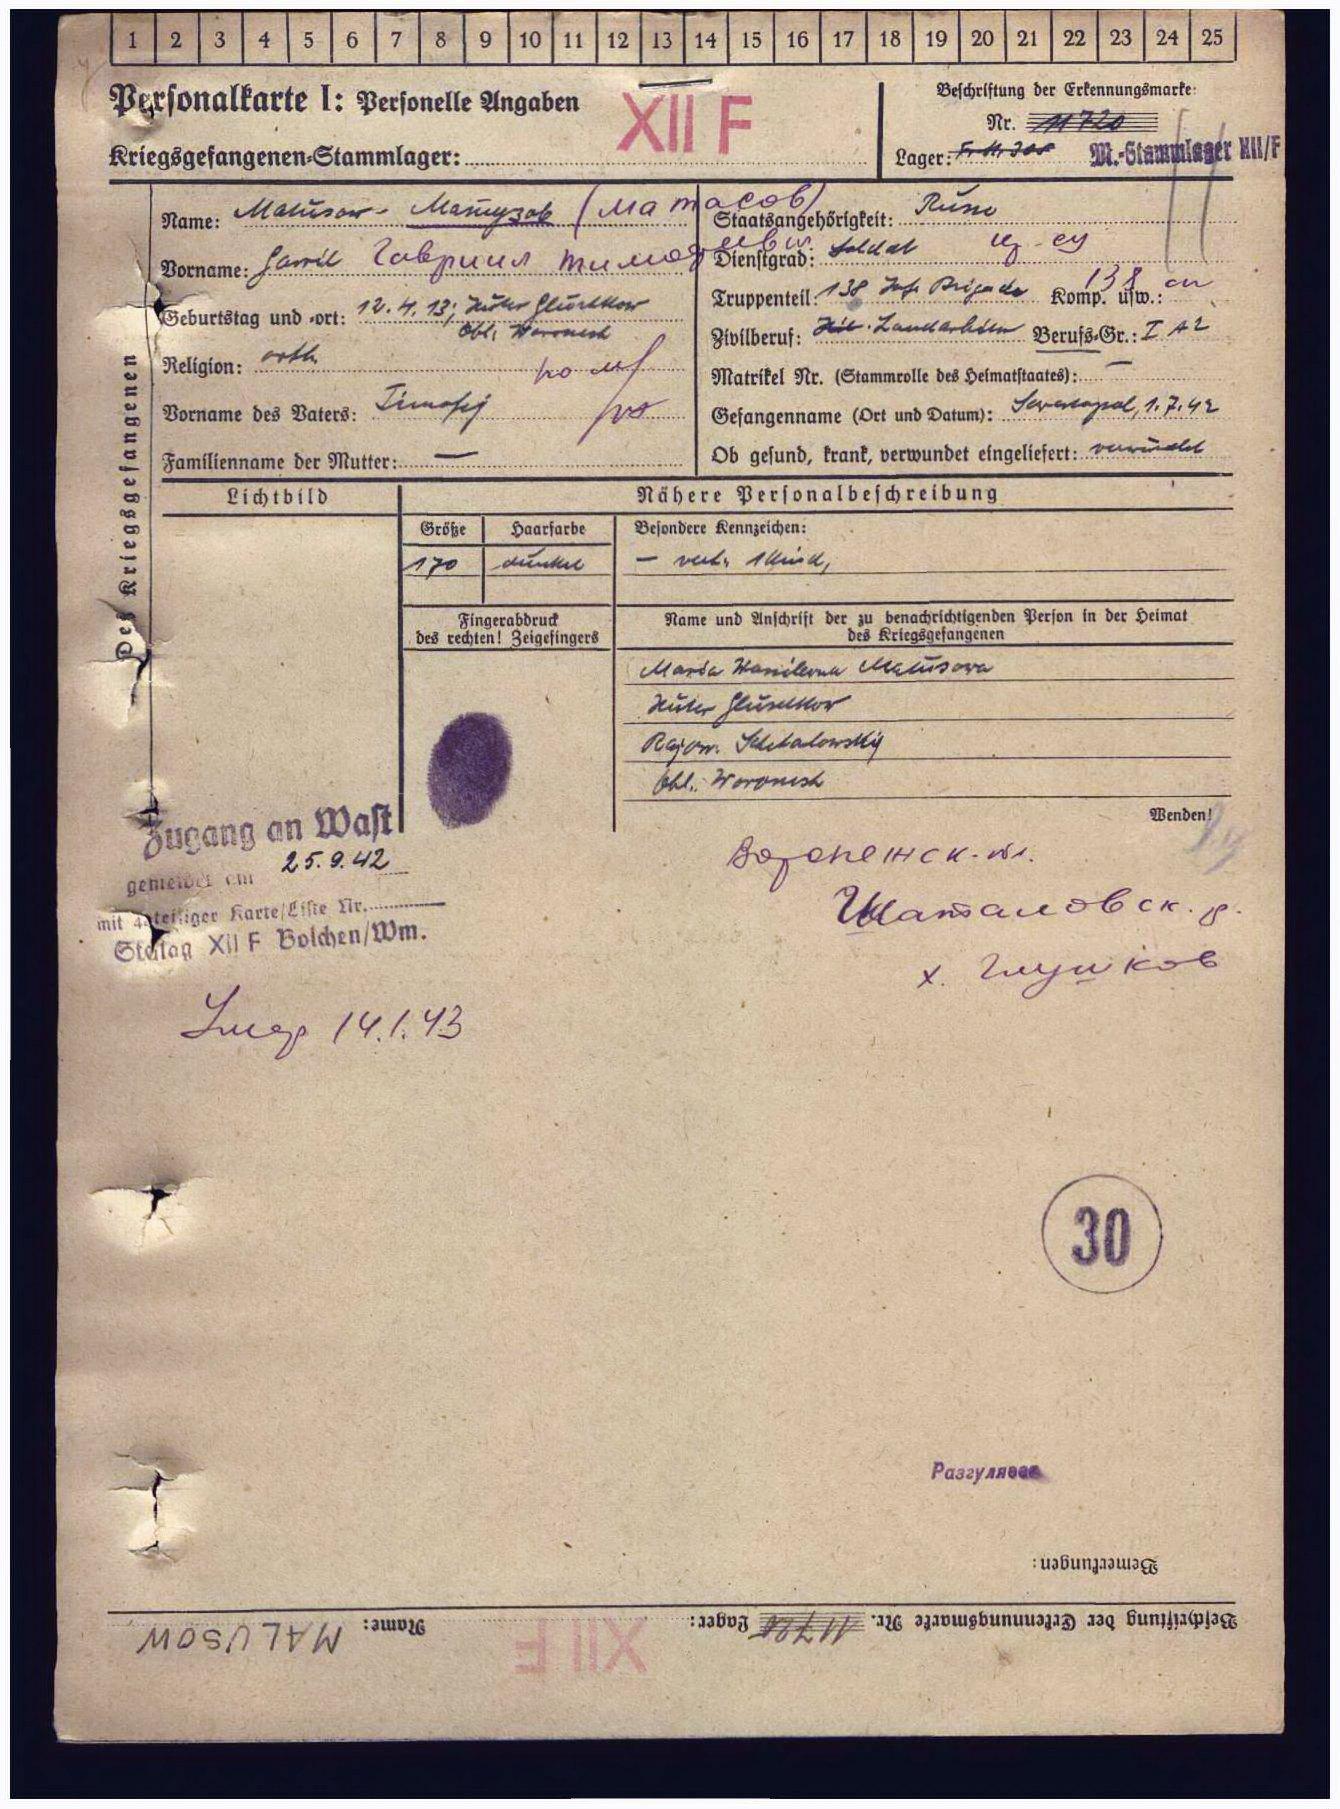 1 2 3 4 5 6 7 8 9 10 11 12 13 14 15 16 17 18 19 20 21 22 23 24 25
Personalkarte I: Personelle Angaben
Kriegsgefangenen-Stammlager: XII F
Beschriftung der Erkennungsmarke:
Nr. 11720
Lager: M.-Stammlager XII/F
Des Kriegsgefangenen
Name: Malusow - Матузов (Матасов)
Vorname: Gavril Гавриил Тимофеевич
Geburtstag und -ort: 12.4.13; Huter Gluschkow
Obl. Woronesh
Religion: orth.
Vorname des Vaters: Timofej
Familienname der Mutter: —
Staatsangehörigkeit: Russe
Dienstgrad: Soldat
Truppenteil: 138 Inf. Brigade Komp. usw.: 138
Zivilberuf: Landarbeiter Berufs-Gr.: I A 2
Matrikel Nr. (Stammrolle des Heimatstaates): —
Gefangennahme (Ort und Datum): Sewastopol, 1.7.42
Ob gesund, krank, verwundet eingeliefert: verwundet
Lichtbild
Nähere Personalbeschreibung
Größe Haarfarbe Besondere Kennzeichen:
170 dunkel — verh. 1 Kind,
Fingerabdruck
des rechten! Zeigefingers
Name und Anschrift der zu benachrichtigenden Person in der Heimat
des Kriegsgefangenen
Maria Wasilewna Malusowa
Huter Gluschkow
Rajon. Schatalowskij
Obl. Woronesh
Wenden!
Zugang an Wast
gemeldet am 25.9.42
mit 4teiliger Karte/Liste Nr.
Stalag XII F Bolchen/Wm.
Воронежск. обл.
Шаталовск. р.
х. Глушков
Умер 14.1.43
30
Разгуляева
Bemerkungen:
Beschriftung der Erkennungsmarke Nr. 11720 Lager: XII F Name: MALUSOW